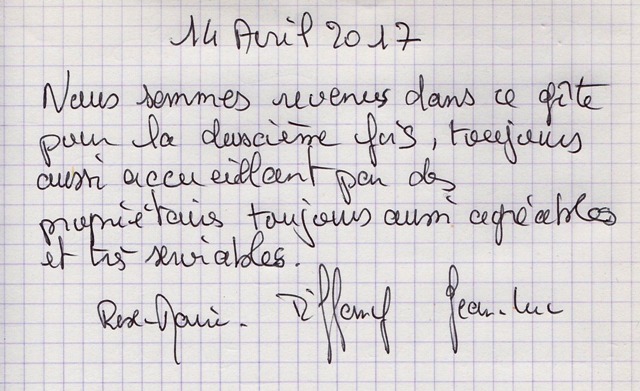 14 Avril 2017
Nous sommes revenus dans ce gîte
pour la deuxième fois, toujours
aussi accueillant par des
propriétaires toujours aussi agréables
et très serviables.
Rose-Marie. Tiffany Jean-Luc